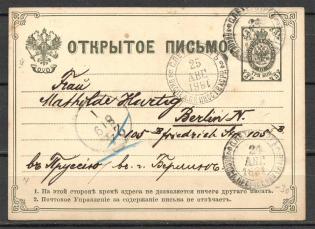 ОТКРЫТОЕ ПИСЬМО
25
АВГ
1881
Frau
Mathilde Hertig
Berlin N.
105 Friedrich Str. 105
24
АВГ
въ Пруссію въ г. Берлинъ
1. На этой сторонѣ кромѣ адреса не дозволяется ничего другаго писать.
2. Почтовое Управленіе за содержаніе письма не отвѣчаетъ.